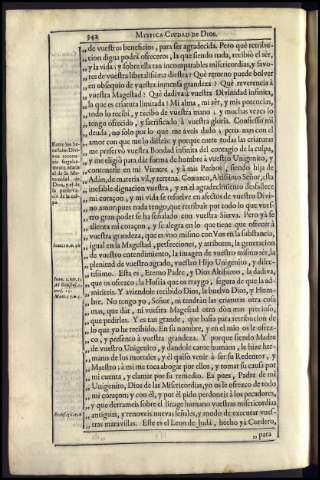 342 MYSTICA CIUDAD DE DIOS.
„ de vuestros beneficios, para ser agradecida. Pero què retribu-
„ cion digna podrà ofreceros, la que siendo nada, recibiò el sèr,
„ y la vida; y sobre ella tan incomparables misericordias, y favo-
„ res de vuestra liberalissima diestra? Què retorno puede bolver
„ en obsequio de vuestra inmensa grandeza? Què reverencia à
„ vuestra Magestad? Què dadiva à vuestra Divinidad infinita,
„ la que es criatura limitada? Mi alma, mi sèr, y mis potencias,
„ todo lo recibì, y recibo de vuestra mano; y muchas vezes lo
„ tengo ofrecido, y sacrificado à vuestra gloria. Confiesso mi
„ deuda, no solo por lo que me aveis dado; pero mas con el
„ amor con que me lo disteis: y porque entre todas las criaturas
„ me preservò vuestra Bondad infinita del contagio de la culpa,
„ y me eligiò para dàr forma de hombre à vuestro Unigenito, y
„ contenerle en mi Vientre, y à mis Pechos; siendo hija de
„ Adàn, de materia vil, y terrena. Conozco, Altissimo Señor, esta
„ inefable dignacion vuestra, y en el agradecimiento desfallece
„ mi coraçon, y mi vida se resuelve en afectos de vuestro Divi-
„ no amor: pues nada tengo, que retribuir por todo lo que vues-
„ tro gran poder se ha señalado con vuestra Sierva. Pero yà se
„ alienta mi coraçon, y se alegra en lo que tiene que ofrecer à
„ vuestra grandeza, que es uno mismo con Vos en la substancia,
„ igual en la Magestad, perfecciones, y atributos, la generacion
„ de vuestro entendimiento, la imagen de vuestro mismo sèr, la
„ plenitud de vuestro agrado, vuestro Hijo Unigenito, y dilec-
„ tissimo. Esta es, Eterno Padre, y Dios Altissimo, la dadiva,
„ que os ofrezco; la Hostia que os traygo, segura de que la ad-
„ mitireis. Y aviendole recibido Dios, le buelvo Dios, y Hom-
„ bre. No tengo yo, Señor, ni tendràn las criaturas otra cosa
„ mas, que dàr, ni vuestra Magestad otro don mas precioso,
„ que pedirles. Y es tan grande, que basta para retribucion de
„ lo que yo he recibido. En su nombre, y en el mio os le ofrez-
„ co, y presento à vuestra grandeza. Y porque siendo Madre
„ de vuestro Unigenito, y dandole carne humana, le hize her-
„ mano de los mortales, y èl quiso venir à ser su Redentor, y
„ Maestro; à mi me toca abogar por ellos, y tomar su causa por
„ mi cuenta, y clamar por su remedio. Ea pues, Padre de mi
„ Unigenito, Dios de las Misericordias, yo os le ofrezco de todo
„ mi coraçon; y con èl, y por èl pido perdoneis à los pecadores,
„ y que derrameis sobre el linage humano vuestras misericordias
„ antiguas, y renoveis nuevas señales, y modo de executar vues-
„ tras maravillas. Este es el Leon de Judà, hecho yà Cordero,
„ para